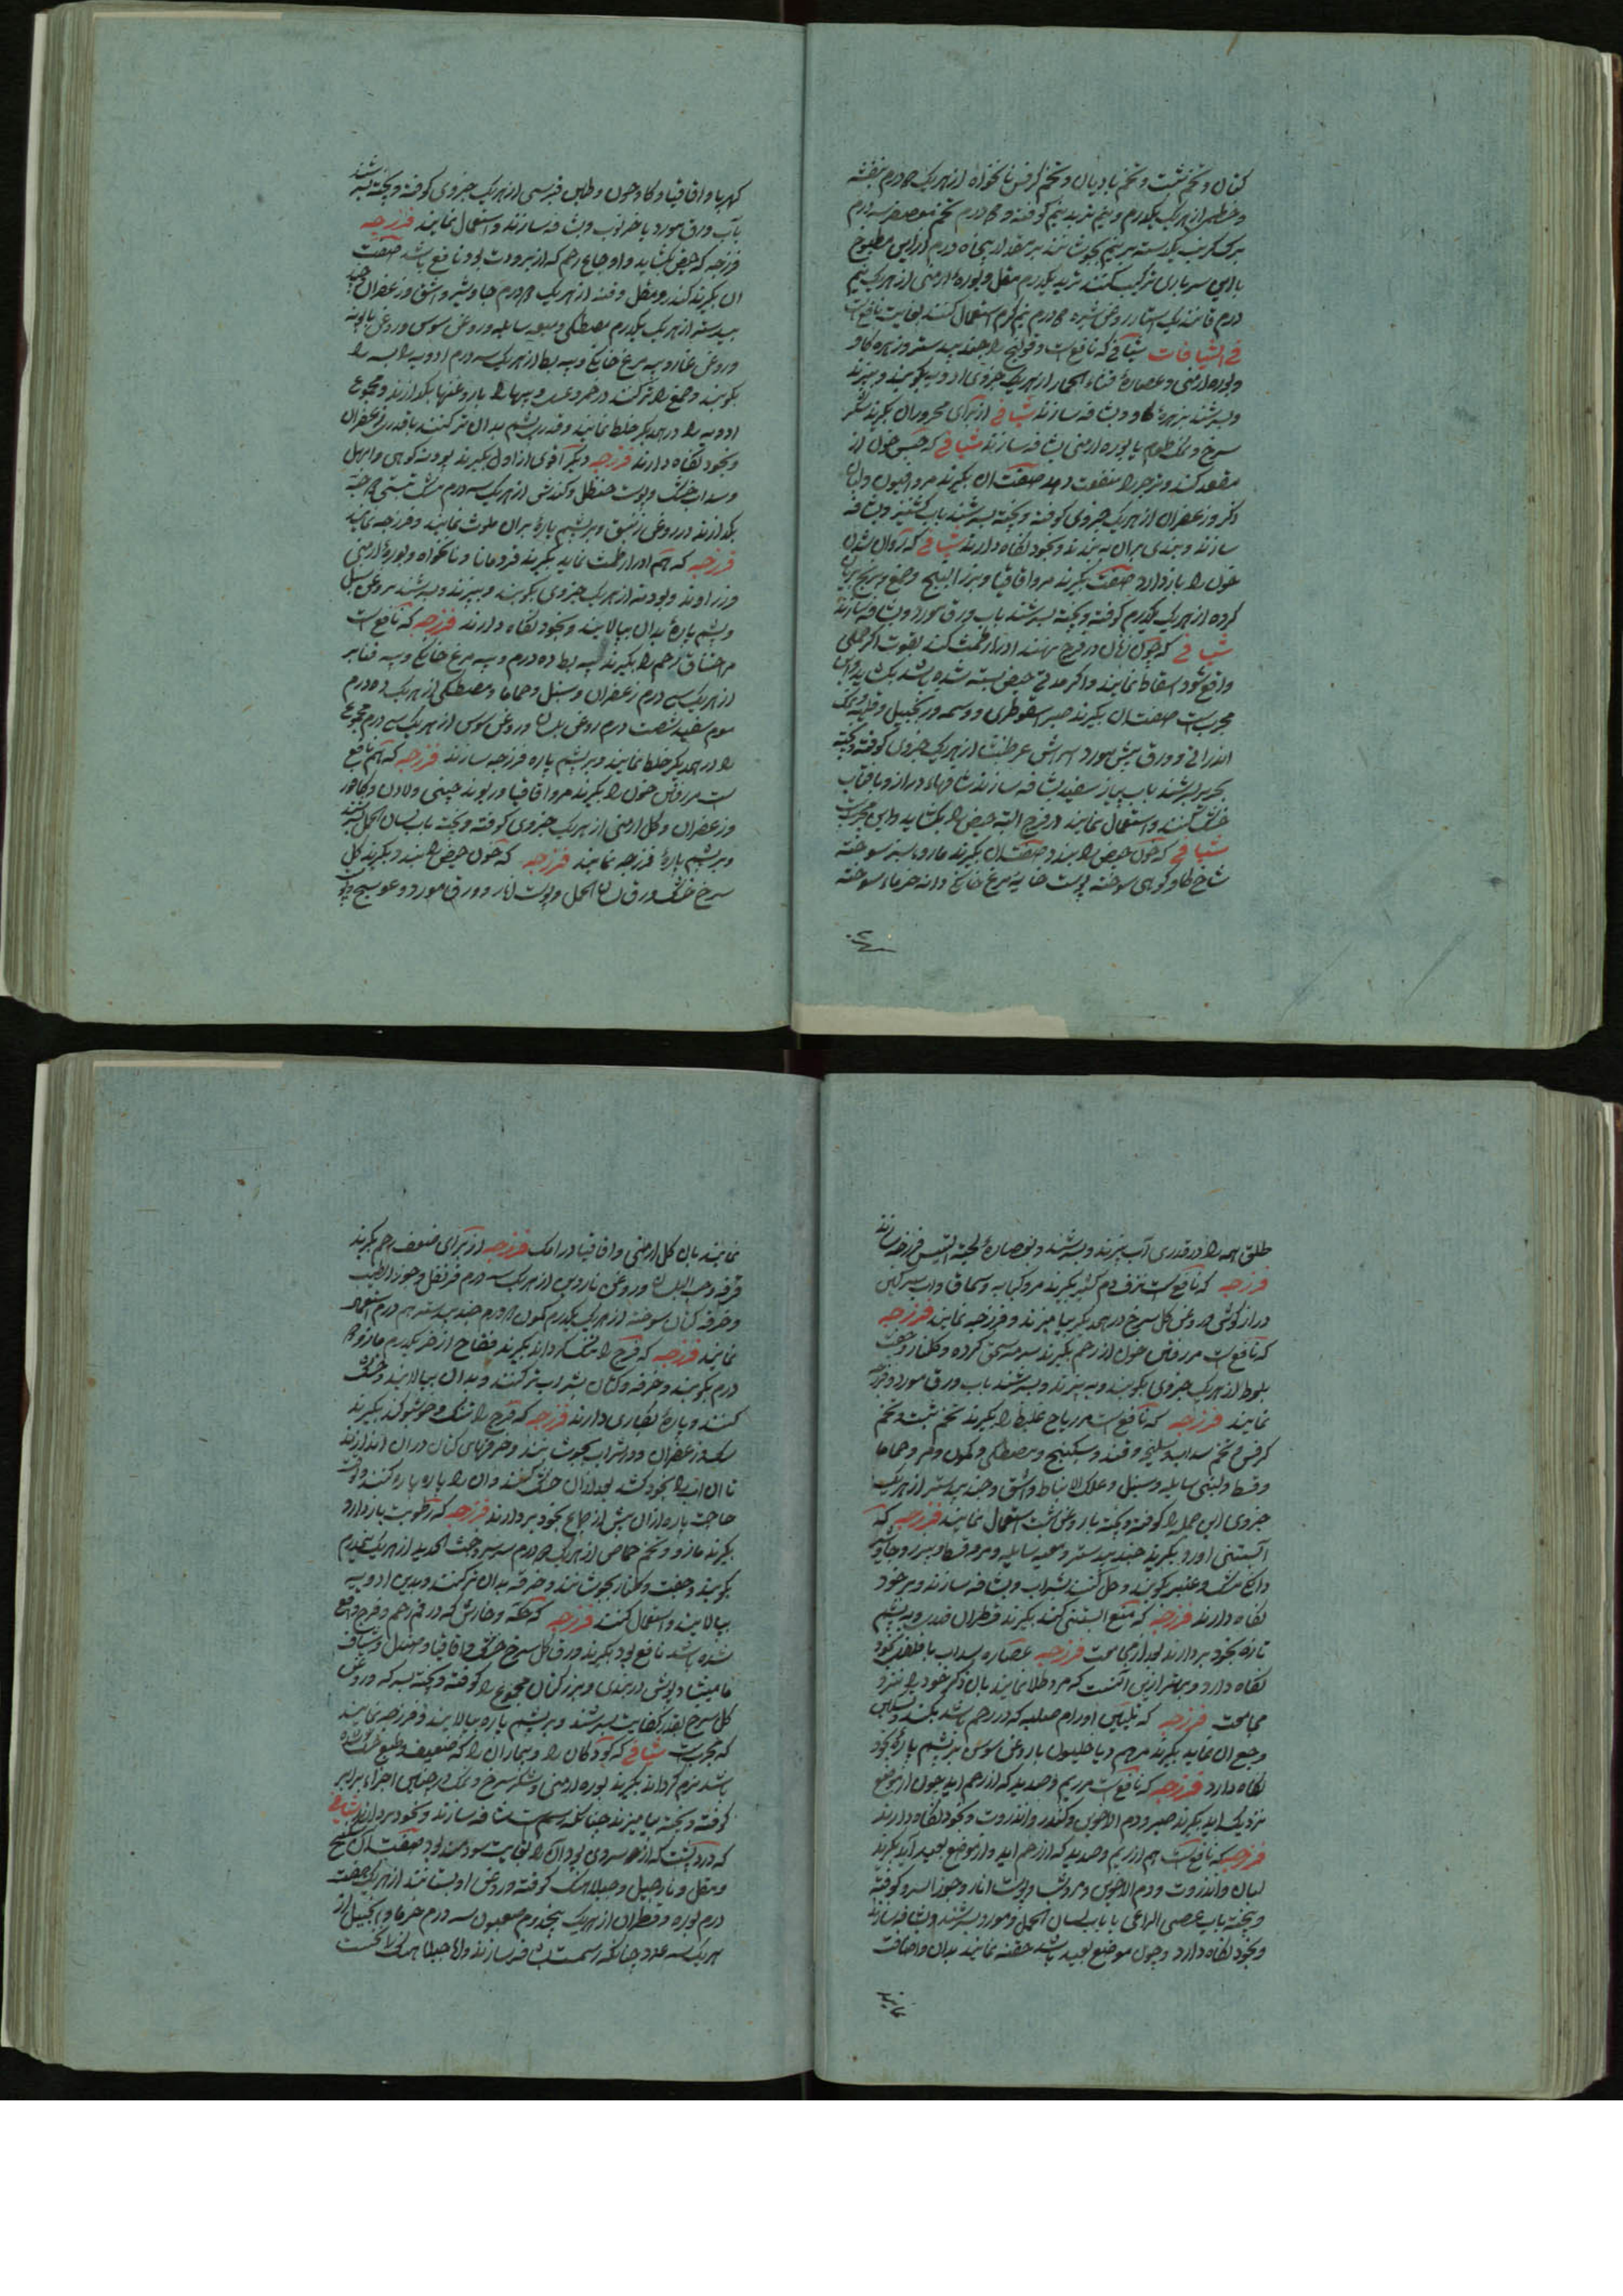 کتان و تخم شبت و تخم بادیان و تخم کرفس نانخواه از هریک درم بنفشه
و خطمی از هریک یکدرم و نیم کوفته و درم تخم معصفر سه درم
برک کرنب یکدسته بجوشانند بر مقدار پنجاه درم از این مطبوخ
با این ترکیب کنند تربد یکدرم مقل و بوره ارمنی از هریک نیم
درم روغن شیره درم نیم کرم استعمال کنند بغایت نافع است
فی الشیافات شیافی که نافع است قولنج را جندبیدستر و زهره کاو
و بوره ارمنی و عصاره قثاء الحمار از هریک جزوی ادویه بکوبند و ببیزند
و بسرشند بزهره کاو و شافه سازند شیافی از برای محروران بکیرند شکر
سرخ و نمک طعام با بوره ارمنی شافه سازند شیافی که حبس خون از
مقعد کند و زحیر را منفعت دهد صفت آن بکیرند مر و افیون و لبان
ذکر و زعفران از هریک جزوی کوفته و بیخته بسرشند باب کشنیز و شافه
سازند و بندی بران به بندند و بخود نکاه دارند شیافی که روان شدن
خون را باز دارد صفت بکیرند مر و اقاقیا و بزر البنج و صمغ و برنج بریان
کرده از هریک یکدرم کوفته و بیخته بسرشند باب ورق مورد و شافه سازند
شیافی که چون زنان در فرج نهند ادرار طمث کند بقوت اکر حملی
واقع شود اسقاط نمایند و اکر مدتی حیض بسته شده باشد بکشاید و این
مجربست صفت ان بکیرند صبر اسقوطری و وسمه و زنجبیل و نمک
اندرانی و ورق مورد از هریک جزوی کوفته و بیخته
بحریر بسرشند باب پیاز سفید شافه سازند شافهاء دراز و بافتاب
خشک کنند و استعمال نمایند در فرج البته حیض را بکشاید و این مجربست
شیافی که خون حیض را ببندد صفت ان بکیرند مازو سوخته
شاخ کاو کوهی سوخته پوست خایه مرغ خانکی دانه خرماء سوخته
کهربا و اقاقیا و طین قبرسی از هریک جزوی کوفته و بیخته بسرشند
بآب ورق مورد یا خرنوب و شافه سازند و استعمال نمایند فرزجه
فرزجه که حیض بکشاید و اوجاع رحم که از برودت بود نافع باشد صفت
ان بکیرند کندر و مقل و قنه از هریک درم جاوشیر و اشق و زعفران و جند
بیدستر از هریک یکدرم مصطکی و میعه سایله و روغن سوسن و روغن بابونه
و روغن غار و پیه مرغ خانکی و پیه بط از هریک سه درم ادویه یابسه را
بکوبند و صمغ را تر کنند در خمر و عسل و پیهها را با روغنها بکدازند و مجموع
ادویه را در همدیکر خلط نمایند و قدری پشم بدان تر کنند با قدری زعفران
و بخود نکاه دارند فرزجه دیکر اقوی از اول بکیرند پودنه کوهی و ابهل
و سداب خشک و پوست حنظل و کندش از هریک سه درم مشک تبتی حبه
بکدازند در روغن زنبق و بر پشم پارۀ بران ملوث نمایند و فرزجه نمایند
فرزجه که هم ادرار طمث نماید بکیرند قردمانا و نانخواه و بوره ارمنی
و زراوند و پودنه از هریک جزوی بکوبند و ببیزند و بسرشند بروغن سنبل
و پشم پارۀ بدان بیالایند و بخود نکاه دارند فرزجه که نافع است
مر اختناق رحم را بکیرند پیه بط ده درم و پیه مرغ خانکی و پیه
از هریک سه درم زعفران و سنبل و حماما و مصطکی از هریک ده درم
موم سفید شصت درم روغن بلسان و روغن سوسن از هریک سه درم مجموع
را در همدیکر خلط نمایند و بر پشم پاره فرزجه سازند فرزجه که هم نافع
است مر رفتن خون را بکیرند مر و اقاقیا و ریوند چینی و لادن و کافور
و زعفران و کل ارمنی از هریک جزوی کوفته و بیخته باب لسان الحمل بسرشند
و بر پشم پارۀ فرزجه نمایند فرزجه که خون حیض را ببندد بکیرند کل
سرخ خشک و ورق لسان الحمل و پوست انار و ورق مورد و عوسج و
طلق همه را در قدری آب بپزند و بسرشند و بعصارۀ لحیة التیس فرزجه سازند
فرزجه که نافع است نزف دم را بکیرند مر و کبابه و سماق و
دراز کوش و روغن کل سرخ در همدیکر بیامیزند و فرزجه نمایند فرزجه
که نافع است مر رفتن خون از رحم بکیرند سرمه سحق کرده و کلنار و جفت
بلوط از هریک جزوی بکوبند و ببیزند و بسرشند باب ورق مورد و فرزجه
نمایند فرزجه که نافع است مر ریاح غلیظ را بکیرند تخم شبت و تخم
کرفس و تخم سداب و سلیخه و قنه و سکبینج و مصطکی و کمون و مر و حماما
و قسط و لبنی سایله و سنبل و علک الانباط و اشق و جندبیدستر از هریک
جزوی این جمله را کوفته و بیخته با روغن شبت استعمال نمایند فرزجه که
آبستنی آورد بکیرند جندبیدستر و میعه سایله و مر و قسط و جاوشیر
دانکی مشک و عنبر بکوبند و حل کنند بشراب و شافه سازند و بر خود
نکاه دارند فرزجه که منع آبستنی کند بکیرند قطران قدری به پشم
تازه بخود بردارند بعد از مجامعت فرزجه عصاره سداب با فلفل بخود
نکاه دارد و بهتر از این آنست که مرد طلا نمایند بان ذکر خود را نزد
مجامعت فرزجه که تلیین اورام صلبه که در رحم باشد بکند و تسکین
وجع ان نماید بکیرند مرهم دیاخیلون با روغن سوسن بر پشم پارۀ بخود
نکاه دارد فرزجه که نافع است مر ریم و صدید که از رحم اید چون از موضع
نزدیک اید بکیرند صبر و دم الاخوین و کندر و انزروت و بخود نکاه دارند
فرزجه که نافع است هم از ریم و صدید که از رحم اید و از موضع بعید آید بکیرند
لبان و انزروت و دم الاخوین و مر و شب و پوست انار و جوز السرو کوفته
و بیخته باب عصی الراعی یا باب لسان الحمل و مورد بسرشند و شافه سازند
و بخود نکاه دارد و چون موضع بعید باشد حقنه نمایند بدان و اضافت
نمایند
نمایند بان کل ارمنی و اقاقیا و رامک فرزجه از برای ضعف رحم بکیرند
قرفه و حب البلسان و روغن ناردین از هریک سه درم قرنفل و جوز الطیب
و خرقه کتان سوخته از هریک یکدرم کمون درم جندبیدستر درم استعمال
نمایند فرزجه که فرج را تنک کرداند بکیرند فقاح اذخر یکدرم مازو
درم بکوبند و خرقه کتان بشراب تر کنند و بدان بیالایند و خشک
کنند و پارۀ بکاری دارند فرزجه که فرج را تنک و خوشبو کند بکیرند
سک و زعفران و در شراب بجوشانند و خرقهای کتان در ان اندازند
تا ان اب را بخود کشد بعد از آن خشک کنند و ان را پاره پاره کنند و وقت
حاجت پاره از ان پیش از جماع بخود بردارند فرزجه که رطوبت باز دارد
بکیرند مازو و تخم حماض از هریک درم سرمه و خبث الحدید از هریک نیم درم
بکوبند و جفت و کلنار بجوشانند و خرقه بدان تر کنند و بدین ادویه
بیالایند و استعمال کنند فرزجه که حکه و خارش که در فم رحم و فرج واقع
شده باشد نافع بود بکیرند ورق کل سرخ خشک و اقاقیا و صندل و شیاف
مامیثا و پوش دربندی و بزر کتان مجموع را کوفته و بیخته بسرکه و روغن
کل سرخ بقدر کفایت بسرشند و بر پشم پاره بیالایند و فرزجه نمایند
که مجربست شیافی که کودکان را و بیماران را که ضعیف و طبع خشک شده
باشد نرم کرداند بکیرند بوره ارمنی و شکر سرخ و نمک و خطمی اجزاء برابر
کوفته و بیخته بیامیزند چنانکه رسم است شافه سازند و بخود بردارند شیافی
که درد پشت که از سردی بود آن را بغایت سودمند بود صفت آن سکبینج
و مقل و نارجیل و حبلاهنک کوفته و روغن او بستانند از هریک هفت
درم بوره و قطران از هریک پنجدرم صابون سه درم خرما و انجیل از
هریک سه عدد چنانکه رسمست شافه سازند و اما